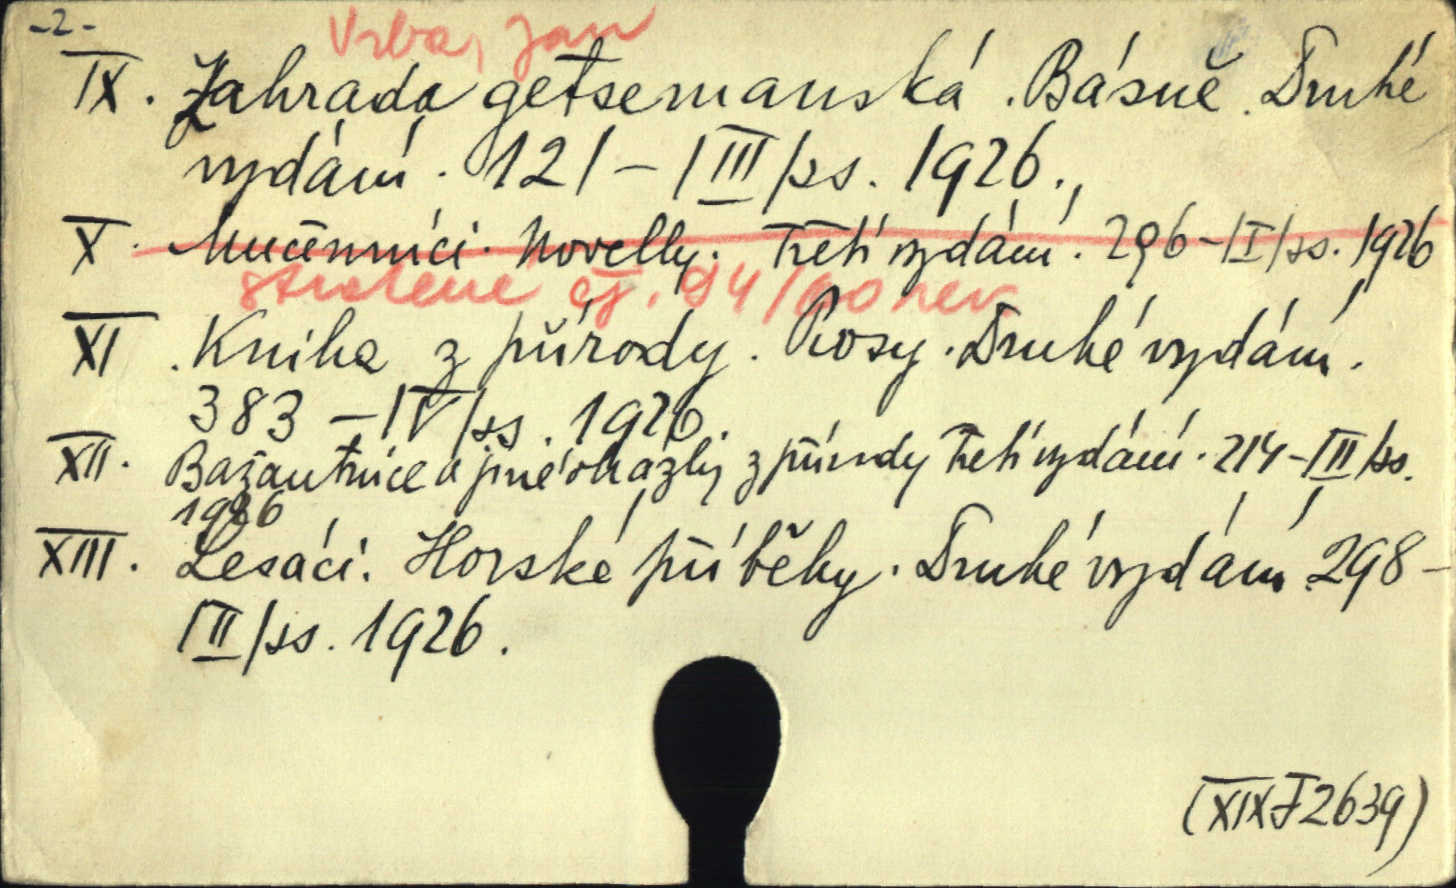 -2-
Vrba, Jan
IX. Zahrada getsemanská. Básně. Druhé
vydání. 121-|III|ss. 1926.
X. Mučenníci. Novelly. Třetí vydání. 296-|I|ss. 1926
stratené čj. 94/60 rev
XI. Kniha z přírody. Rosy. Druhé vydání.
383-|IV|ss. 1926.
XII. Bažantnice a jiné obrázky z přírody Třetí vydání. 214-|III|ss.
1926
XIII. Lesáci. Horské příběhy. Druhé vydání. 298-
|II|ss. 1926.
(XIX J 2639)